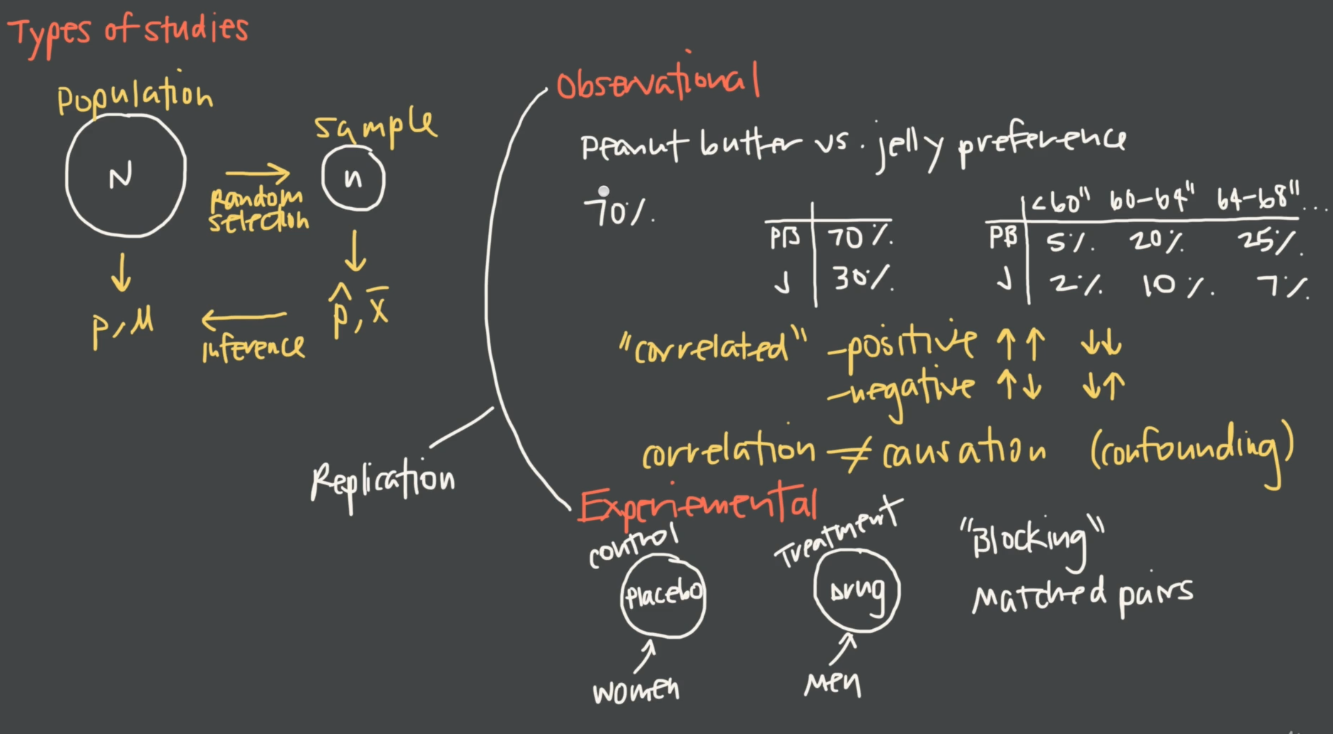 Types of studies
Population
N
Random
selection
Sample
n
p, μ
inference
p̂, x̄
Replication
Observational
Peanut butter vs. jelly preference
70%.
PB 70%.
J 30%.
<60" 60-64" 64-68" ...
PB 5%. 20%. 25%.
J 2%. 10%. 7%.
"correlated" -positive ↑↑ ↓↓
-negative ↑↓ ↓↑
correlation ≠ causation (confounding)
Experiemental
control
Placebo
women
Treatment
Drug
Men
"Blocking"
Matched pairs